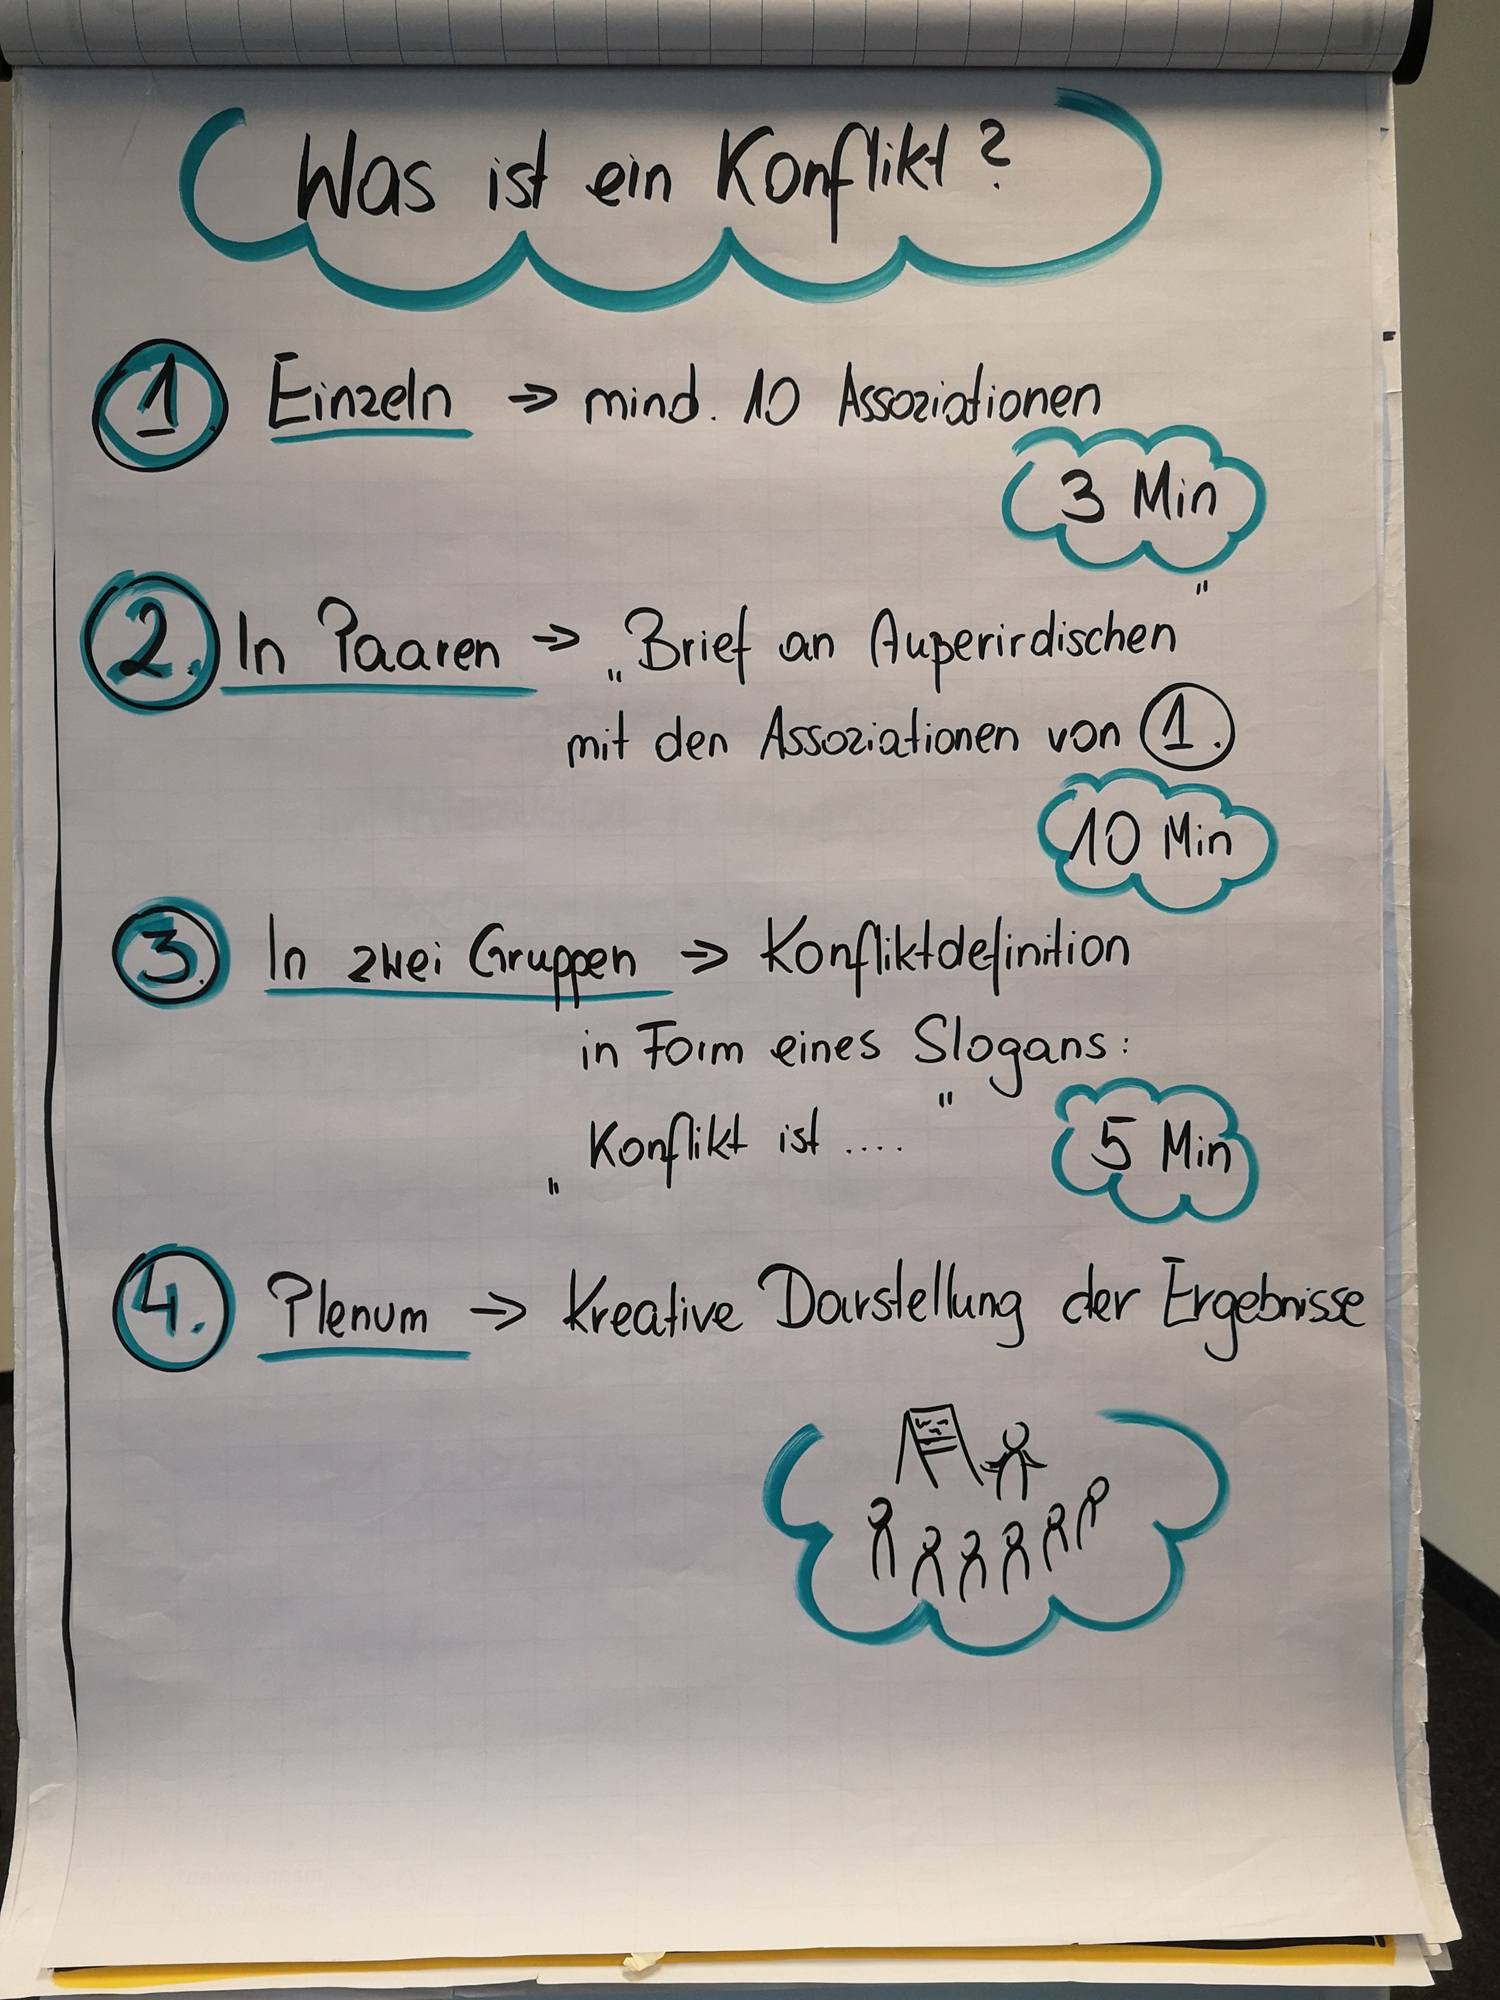 Was ist ein Konflikt?
1 Einzeln → mind. 10 Assoziationen
3 Min
2. In Paaren → „Brief an Außerirdischen"
mit den Assoziationen von 1.
10 Min
3. In zwei Gruppen → Konfliktdefinition
in Form eines Slogans:
„Konflikt ist ...."
5 Min
4. Plenum → Kreative Darstellung der Ergebnisse